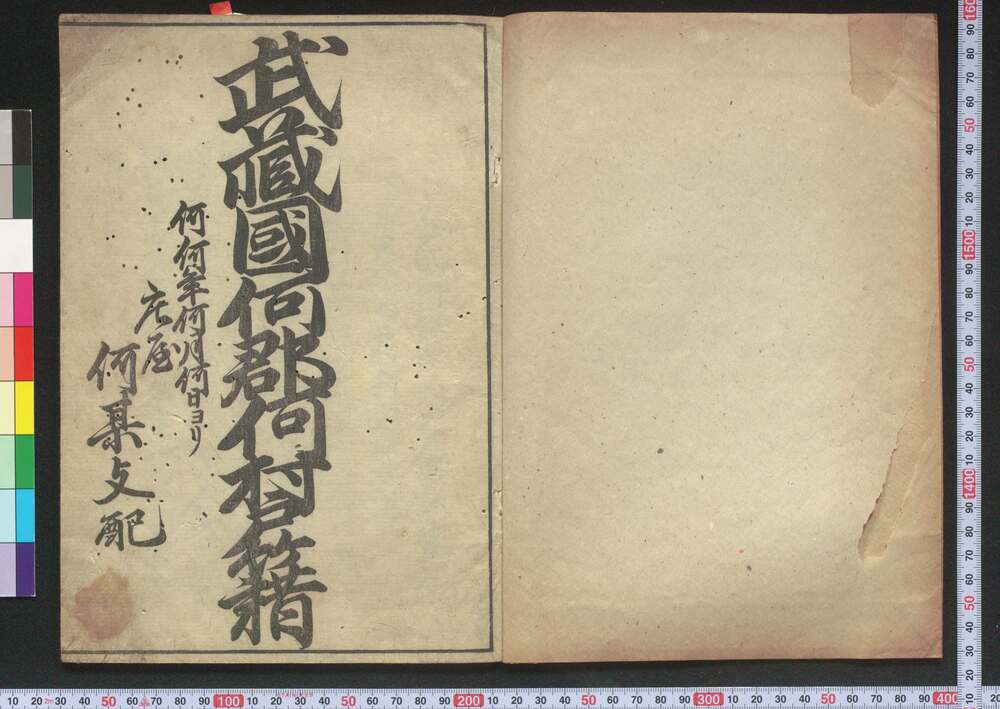 武藏國何郡何村籍
何何年何月何日ヨリ
庄屋
何某支配